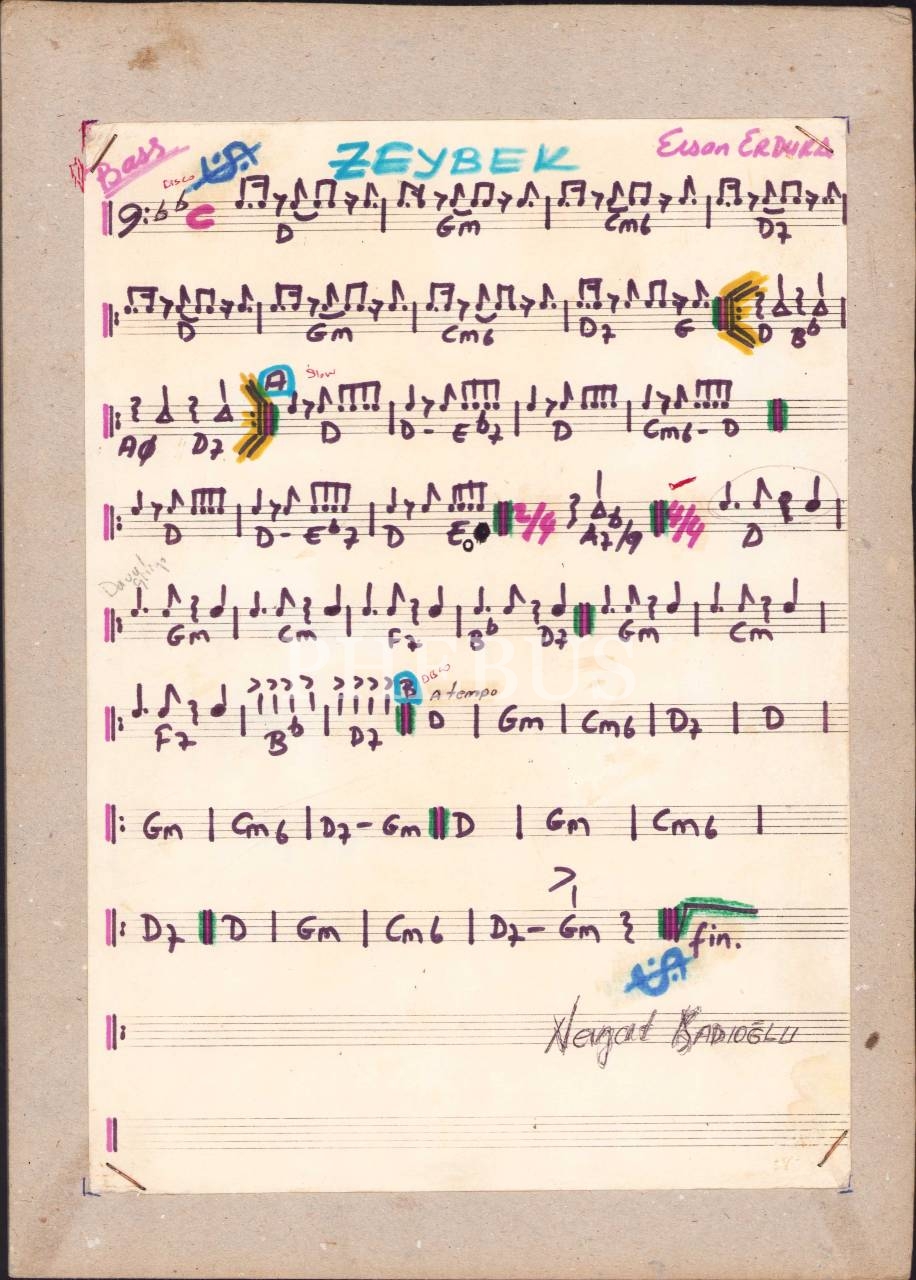 Bass
ZEYBEK
Ersan ERDURA
Disco
C
D Gm Cm6 D7
D Gm Cm6 D7 G D Bb
A slow
Aø D7 D D- Eb7 D Cm6- D
D D- Eb7 D E 2/4 A7/9 4/4 D
Gm Cm F7 Bb D7 Gm Cm
B Disco A tempo
F7 Bb D7 D Gm Cm6 D7 D
Gm Cm6 D7- Gm D Gm Cm6
D7 D Gm Cm6 D7- Gm fin.
KADIOĞLU
PHEBUS